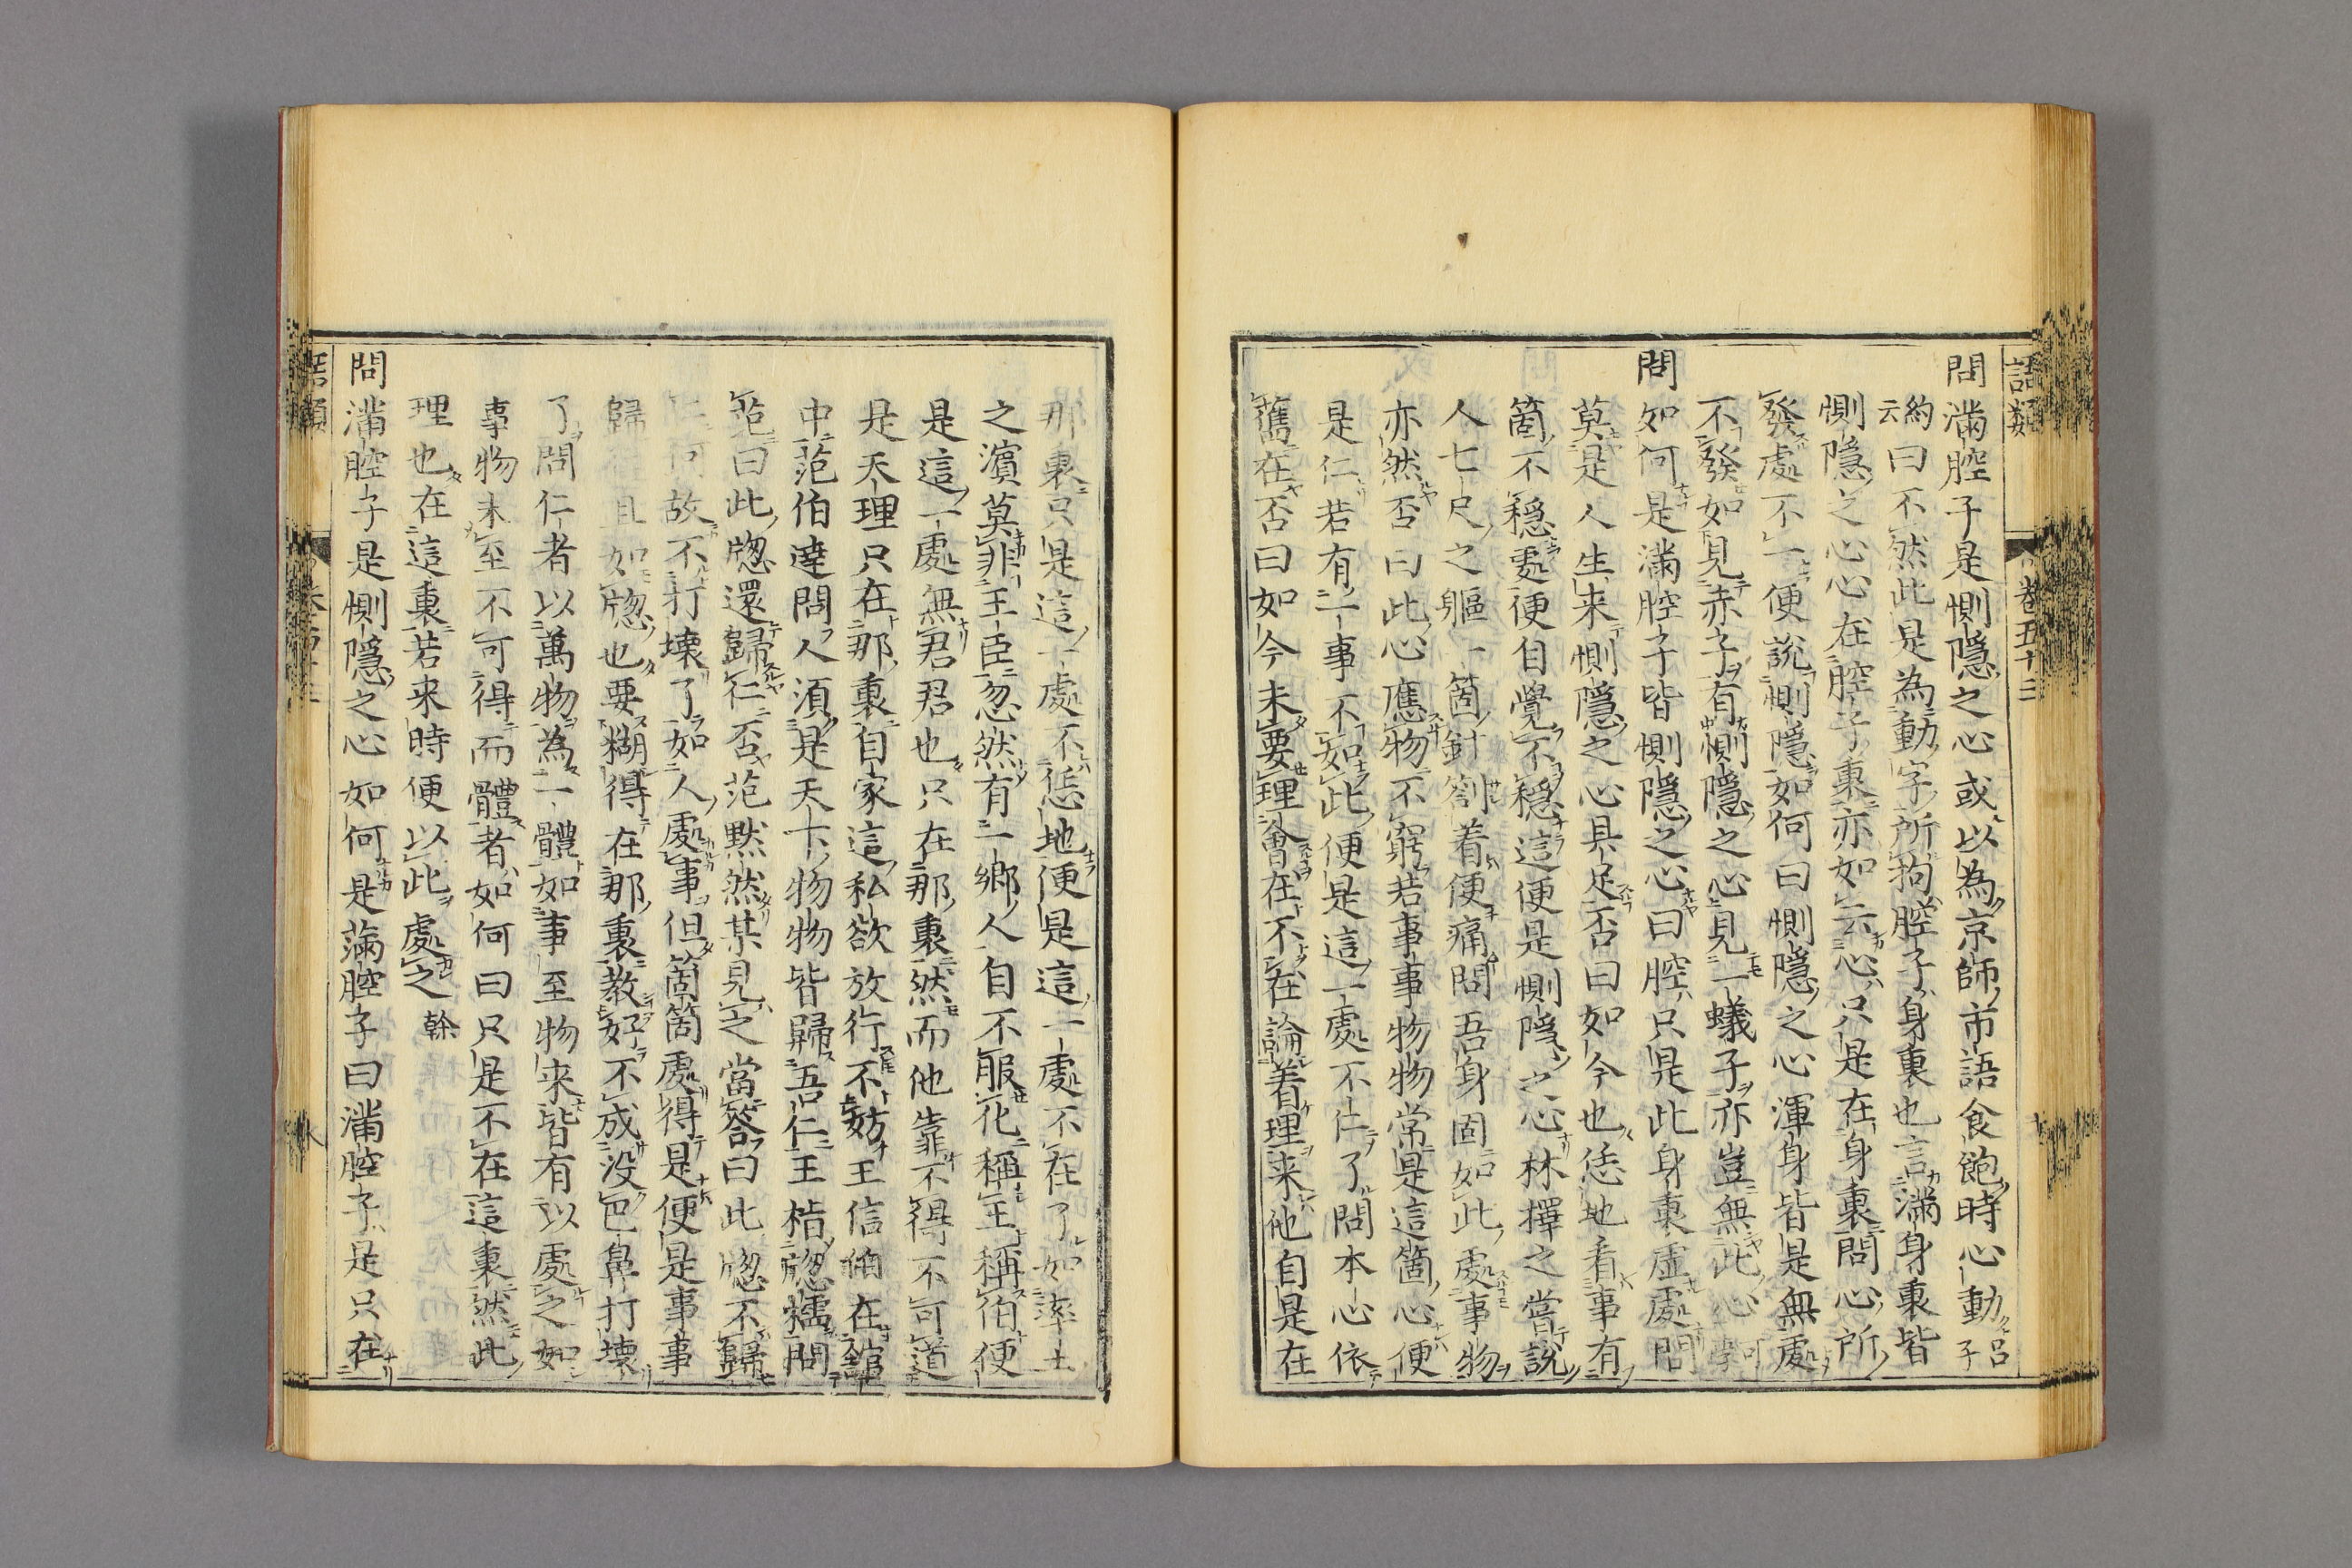 語類
卷五十三
問滿腔子是惻隱之心或以為京師市語食飽時心動呂子
約云曰不然此是為動字所拘腔子身裏也言滿身裏皆
惻隱之心心在腔子裏亦如云心只是在身裏問心所
發處不一便說惻隱如何曰惻隱之心渾身皆是無處
不發如見赤子有惻隱之心見一蟻子亦豈無此心可學
問如何是滿腔子皆惻隱之心曰腔只是此身裏虛處問
莫是人生来惻隱之心具足否曰如今也恁地看事有
箇不穩處便自覺不穩這便是惻隱之心林擇之嘗說
人七尺之軀一箇針劄着便痛問吾身固如此處事物
亦然否曰此心應物不窮若事事物物常是這箇心便
是仁若有一事不如此便是這一處不仁了問本心依
舊在否曰如今未要理會在不在論着理来他自是在
那裏只是這一處不恁地便是這一處不在了如率土
之濱莫非王臣忽然有一鄉人自不服化稱王稱伯便
是這一處無君君也只在那裏然而他靠不得不可道
是天理只在那裏自家這私欲放行不妨王信伯在館
中范伯達問人須是天下物物皆歸吾仁王指窓櫺問
范曰此窓還歸仁否范默然某見之當答曰此窓不歸
仁何故不打壊了如人處事但箇箇處得是便是事事
歸仁且如窓也要糊得在那裏教好不成没巴鼻打壊
了問仁者以萬物為一體如事至物来皆有以處之如
事物未至不可得而體者如何曰只是不在這裏然此
理也在這裏若来時便以此處之榦
問滿腔子是惻隱之心如何是滿腔子曰滿腔子是只在
語類